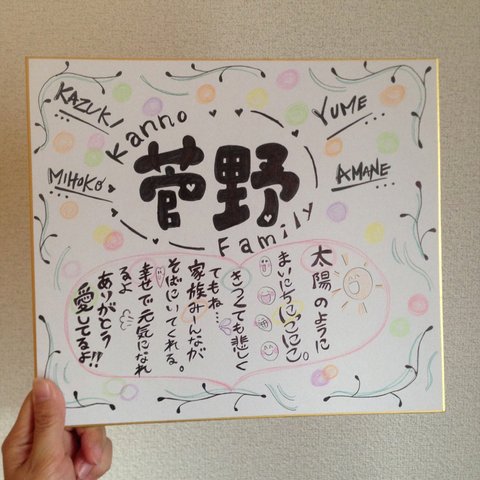 KAZUKI
YUME
MIHOKO
AMANE
Kanno
菅野
Family
太陽のように
まいにちにこにこ。
きつくても悲しく
てもね…
家族みーんなが
そばにいてくれる。
幸せで元気になれ
るよ
ありがとう
愛してるよ!!